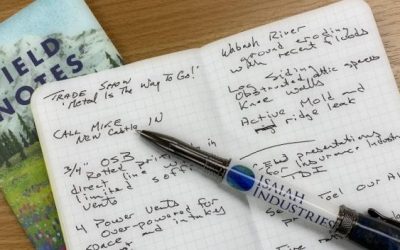 FIELD
NOTES
TRADE SHOW
"Metal Is The Way To Go!"
CALL MIKE
New Castle IN
3/4" OSB
Rotted
in
direct line
limited soffit
vents
4 Power vents for
over-powered for
space and intakes
Wabash River
ground eroding
with recent floods
Log Siding
Obstructed attic access
Knee walls
Active Mold and
ridge leak
Presentations
Insurance Industry
TDI
Tool
ISAIAH
INDUSTRIES